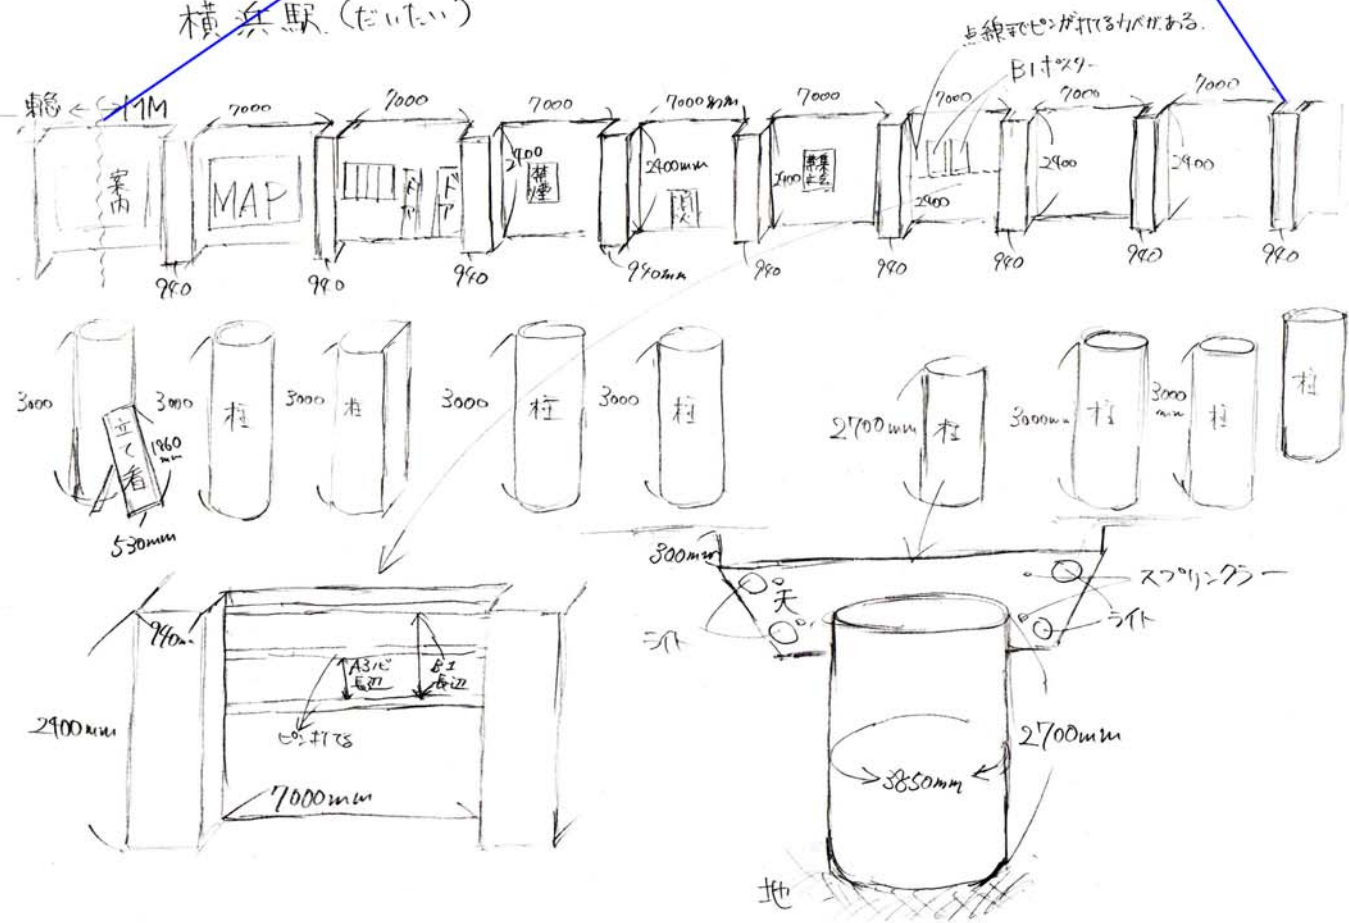 横浜駅(だいたい)
点線までピンが打てるカバがある.
B1ポスター
東急 ← → MM
7000
7000
7000
7000mm
7000
7000
7000
7000
案内
MAP
ドア
ドア
2400
禁煙
2400mm
2400
禁集会
2400
2400
2400
940
940
940
940mm
940
940
940
940
940
3000
立て看
1860mm
530mm
3000
柱
3000
柱
3000
柱
3000
柱
2700mm
柱
3000mm
柱
3000mm
柱
柱
940mm
2400mm
A3バ長辺
B1長辺
ピン打てる
7000mm
300mm
天
スプリンクラー
ライト
ライト
3850mm
2700mm
地